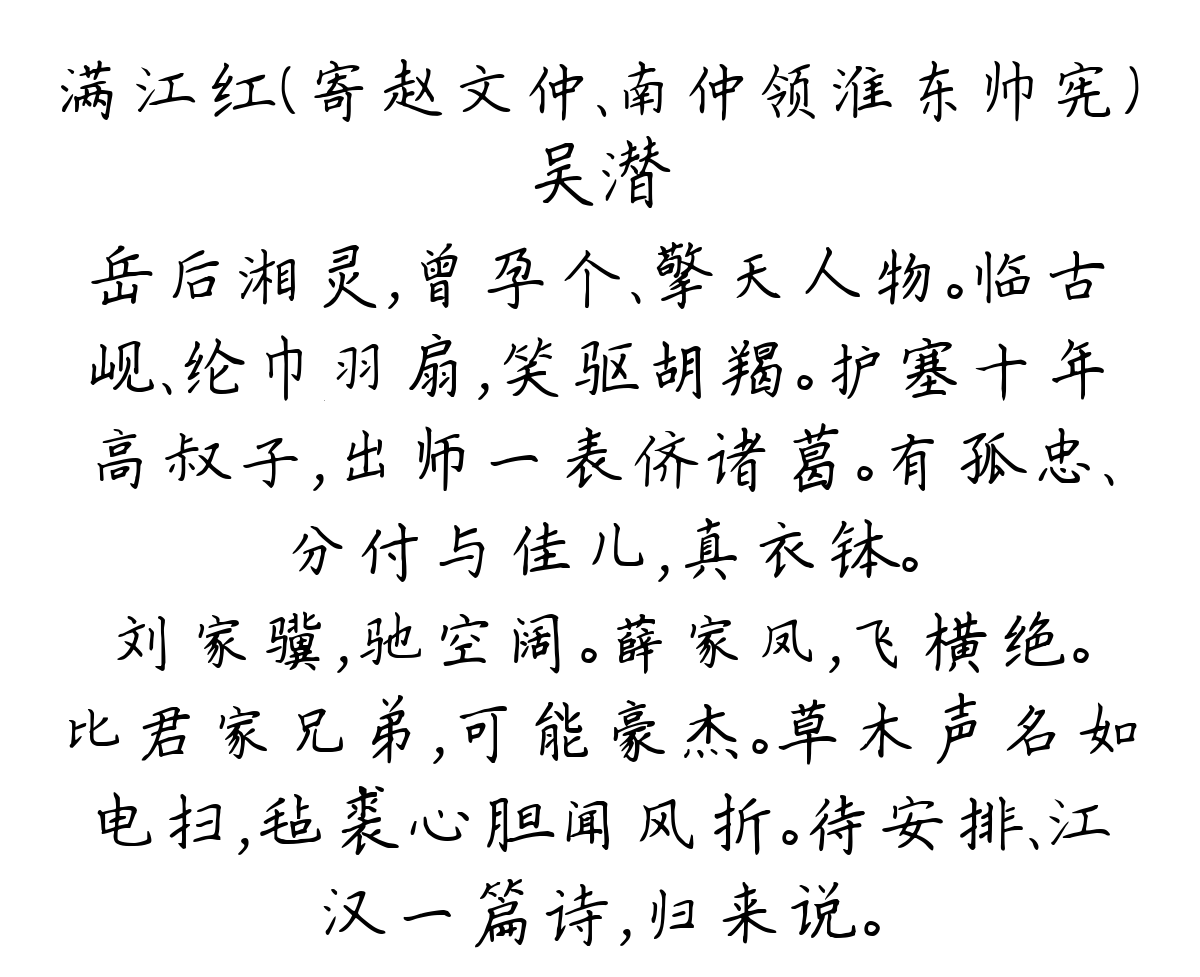 满江红(寄赵文仲、南仲领淮东帅宪)
吴潜
岳后湘灵,曾孕个、擎天人物。临古
岘、纶巾羽扇,笑驱胡羯。护塞十年
高叔子,出师一表侪诸葛。有孤忠、
分付与佳儿,真衣钵。
刘家骥,驰空阔。薛家凤,飞横绝。
比君家兄弟,可能豪杰。草木声名如
电扫,毡裘心胆闻风折。待安排、江
汉一篇诗,归来说。